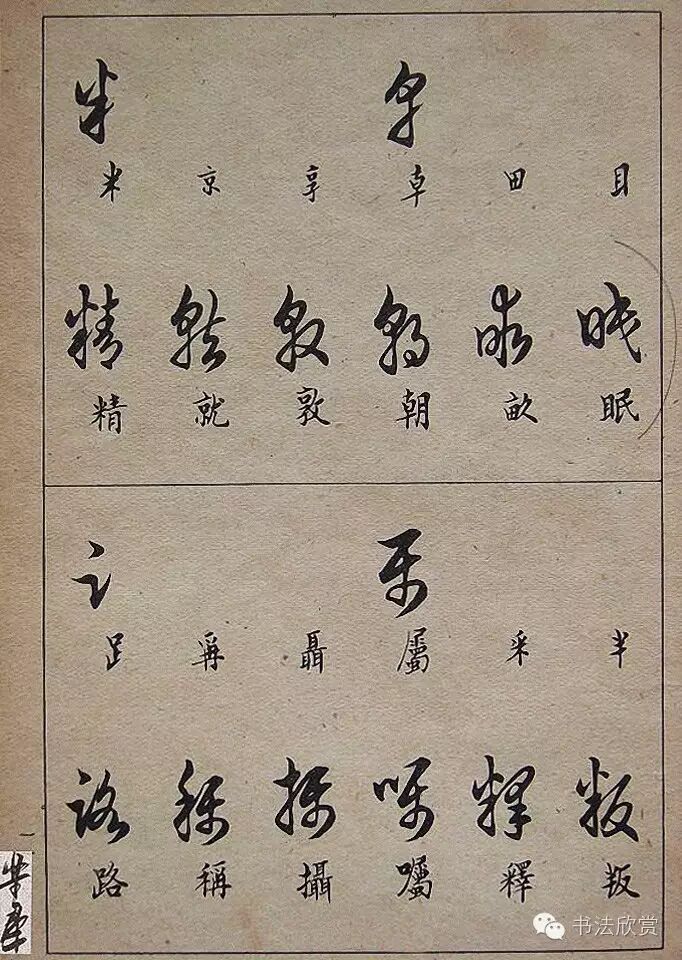 卓 米
目 田 卓 享 京 米
眠 畝 朝 敦 就 精
眠 畝 朝 敦 就 精
屬 𧾷
半 釆 屬 聶 爯 𧾷
叛 釋 囑 攝 稱 路
叛 釋 囑 攝 稱 路
书法欣赏